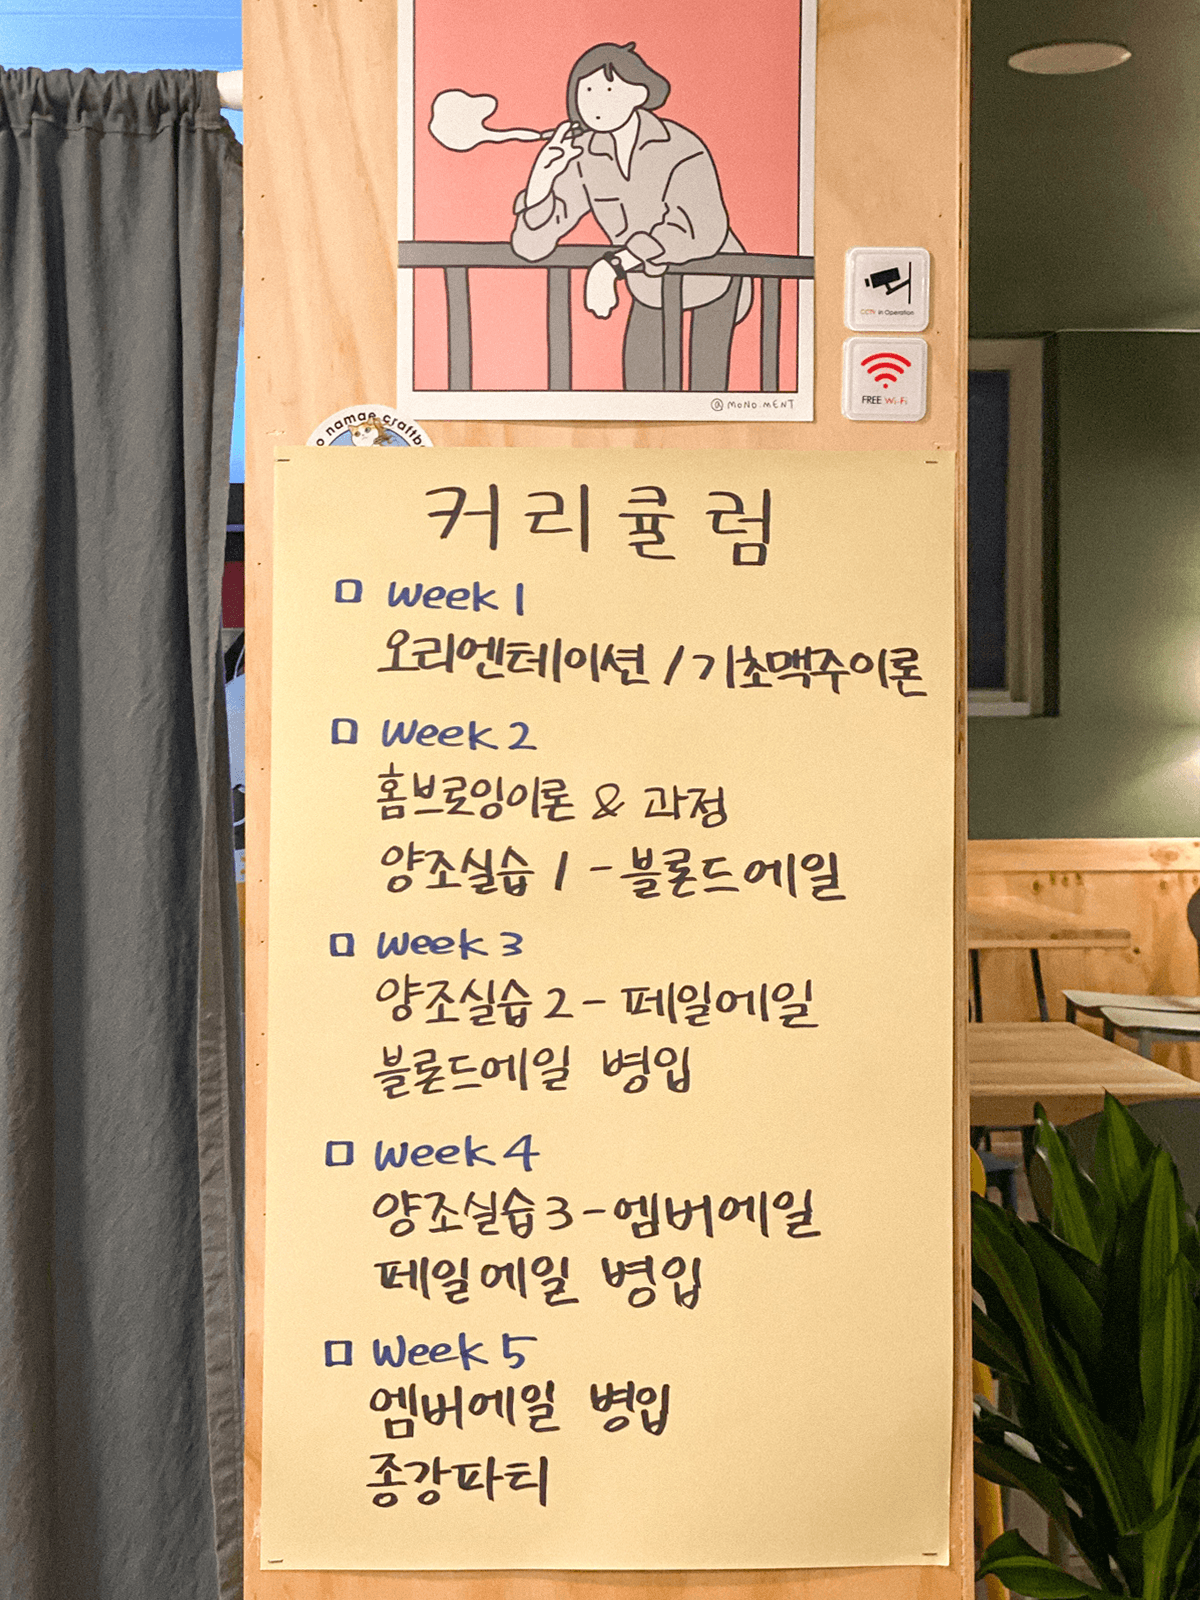 @MONO.MENT
CCTV in Operation
FREE Wi-Fi
namae craftb
커리큘럼
Week 1
오리엔테이션 / 기초맥주이론
Week 2
홈브로잉이론 & 과정
양조실습 1 - 블론드에일
Week 3
양조실습 2 - 페일에일
블론드에일 병입
Week 4
양조실습 3 - 엠버에일
페일에일 병입
Week 5
엠버에일 병입
종강파티